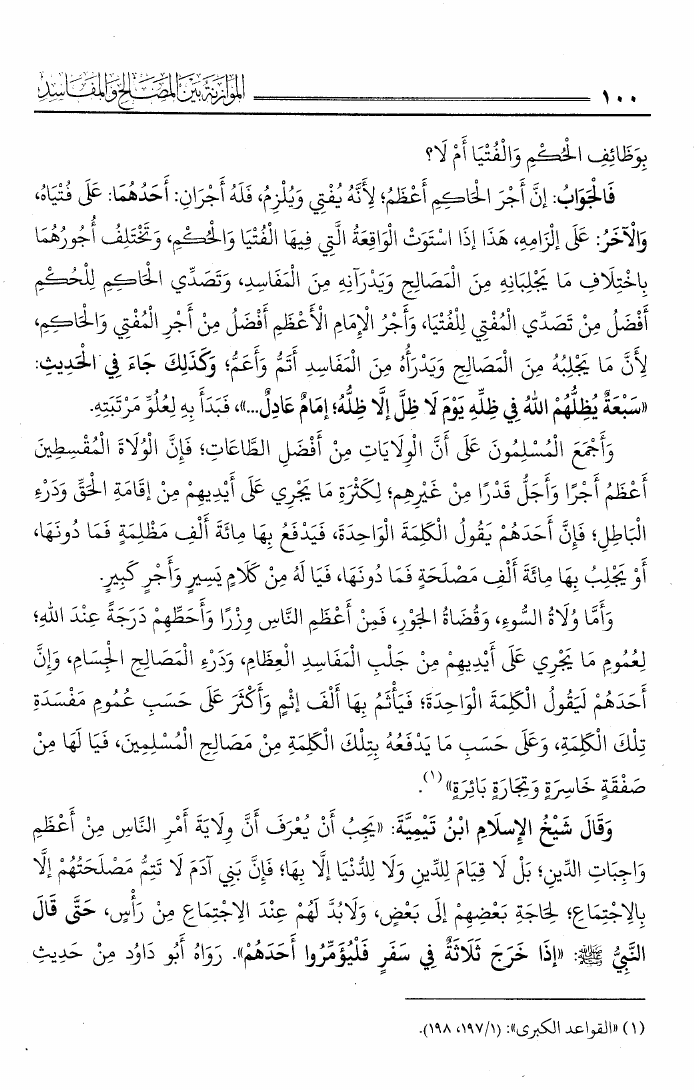 ١٠٠ الموازنة بين المصالح والمفاسد
بِوَظَائِفِ الْحُكْمِ وَالْفُتْيَا أَمْ لَا؟
فَالْجَوَابُ: إِنَّ أَجْرَ الْحَاكِمِ أَعْظَمُ؛ لِأَنَّهُ يُفْتِي وَيُلْزِمُ، فَلَهُ أَجْرَانِ: أَحَدُهُمَا: عَلَى فُتْيَاهُ،
وَالْآخَرُ: عَلَى إِلْزَامِهِ، هَذَا إِذَا اسْتَوَتْ الْوَاقِعَةُ الَّتِي فِيهَا الْفُتْيَا وَالْحُكْمِ، وَتَخْتَلِفُ أُجُورُهُمَا
بِاخْتِلَافِ مَا يَجْلِبَانِهِ مِنَ الْمَصَالِحِ وَيَدْرَآنِهِ مِنَ الْمَفَاسِدِ، وَتَصَدِّي الْحَاكِمِ لِلْحُكْمِ
أَفْضَلُ مِنْ تَصَدِّي الْمُفْتِي لِلْفُتْيَا، وَأَجْرُ الْإِمَامِ الْأَعْظَمِ أَفْضَلُ مِنْ أَجْرِ الْمُفْتِي وَالْحَاكِمِ،
لِأَنَّ مَا يَجْلِبُهُ مِنَ الْمَصَالِحِ وَيَدْرَأُهُ مِنَ الْمَفَاسِدِ أَتَمُّ وَأَعَمُّ؛ وَكَذَلِكَ جَاءَ فِي الْحَدِيثِ:
«سَبْعَةٌ يُظِلُّهُمْ اللهُ فِي ظِلِّهِ يَوْمَ لَا ظِلَّ إِلَّا ظِلُّهُ؛ إِمَامٌ عَادِلٌ...»، فَبَدَأَ بِهِ لِعُلُوِّ مَرْتَبَتِهِ.
وَأَجْمَعَ الْمُسْلِمُونَ عَلَى أَنَّ الْوِلَايَاتِ مِنْ أَفْضَلِ الطَّاعَاتِ؛ فَإِنَّ الْوُلَاةَ الْمُقْسِطِينَ
أَعْظَمُ أَجْرًا وَأَجَلُّ قَدْرًا مِنْ غَيْرِهِم؛ لِكَثْرَةِ مَا يَجْرِي عَلَى أَيْدِيهِمْ مِنْ إِقَامَةِ الْحَقِّ وَدَرْءِ
الْبَاطِلِ؛ فَإِنَّ أَحَدَهُمْ يَقُولُ الْكَلِمَةَ الْوَاحِدَةَ، فَيَدْفَعُ بِهَا مِائَةَ أَلْفِ مَظْلِمَةٍ فَمَا دُونَهَا،
أَوْ يَجْلِبُ بِهَا مِائَةَ أَلْفِ مَصْلَحَةٍ فَمَا دُونَهَا، فَيَا لَهُ مِنْ كَلَامٍ يَسِيرٍ وَأَجْرٍ كَبِيرٍ.
وَأَمَّا وُلَاةُ السُّوءِ، وَقُضَاةُ الْجَوْرِ، فَمِنْ أَعْظَمِ النَّاسِ وِزْرًا وَأَحَطِّهِمْ دَرَجَةً عِنْدَ اللهِ؛
لِعُمُومِ مَا يَجْرِي عَلَى أَيْدِيهِمْ مِنْ جَلْبِ الْمَفَاسِدِ الْعِظَامِ، وَدَرْءِ الْمَصَالِحِ الْجِسَامِ، وَإِنَّ
أَحَدَهُمْ لَيَقُولُ الْكَلِمَةَ الْوَاحِدَةَ؛ فَيَأْثَمُ بِهَا أَلْفَ إِثْمٍ وَأَكْثَرَ عَلَى حَسَبِ عُمُومِ مَفْسَدَةِ
تِلْكَ الْكَلِمَةِ، وَعَلَى حَسَبِ مَا يَدْفَعُهُ بِتِلْكَ الْكَلِمَةِ مِنْ مَصَالِحِ الْمُسْلِمِينَ، فَيَا لَهَا مِنْ
صَفْقَةٍ خَاسِرَةٍ وَتِجَارَةٍ بَائِرَةٍ»(١).
وَقَالَ شَيْخُ الْإِسْلَامِ ابْنُ تَيْمِيَّةَ: «يَجِبُ أَنْ يُعْرَفَ أَنَّ وِلَايَةَ أَمْرِ النَّاسِ مِنْ أَعْظَمِ
وَاجِبَاتِ الدِّينِ؛ بَلْ لَا قِيَامَ لِلدِّينِ وَلَا لِلدُّنْيَا إِلَّا بِهَا؛ فَإِنَّ بَنِي آدَمَ لَا تَتِمُّ مَصْلَحَتُهُمْ إِلَّا
بِالِاجْتِمَاعِ؛ لِحَاجَةِ بَعْضِهِمْ إِلَى بَعْضٍ، وَلَابُدَّ لَهُمْ عِنْدَ الِاجْتِمَاعِ مِنْ رَأْسٍ، حَتَّى قَالَ
النَّبِيُّ ﷺ: «إِذَا خَرَجَ ثَلَاثَةٌ فِي سَفَرٍ فَلْيُؤَمِّرُوا أَحَدَهُمْ». رَوَاهُ أَبُو دَاوُد مِنْ حَدِيثِ
(١) «القواعد الكبرى»: (١/ ١٩٧، ١٩٨).